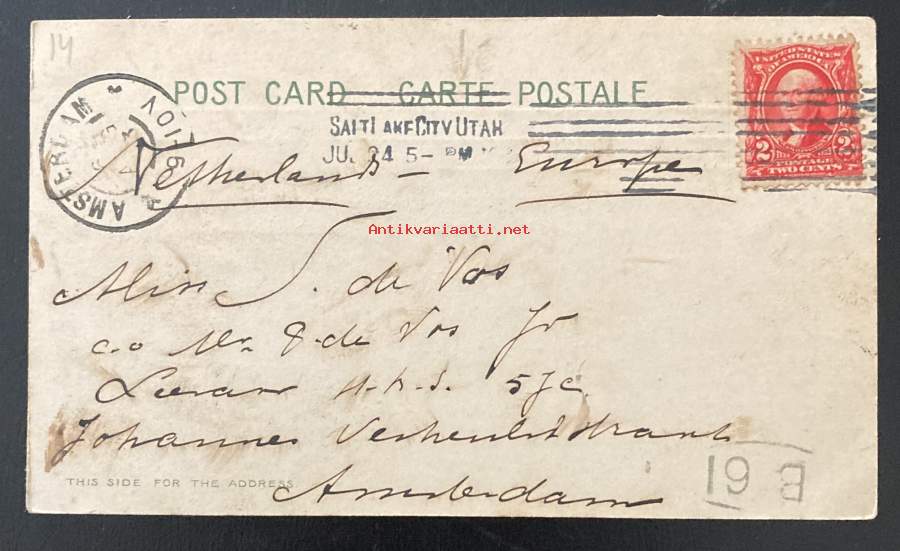 14
POST CARD CARTE POSTALE
UNITED STATES OF AMERICA
2 2
POSTAGE
TWO CENTS
SALT LAKE CITY UTAH
JUL 24 5- PM
AMSTERDAM
Netherlands - Europe
Antikvariaatti.net
Miss S. de Vos
c.o Mr. J. de Vos Jr
Leeraar H.B.S. 5 J C.
Johannes Verhulststraat
Amsterdam
THIS SIDE FOR THE ADDRESS
19 B